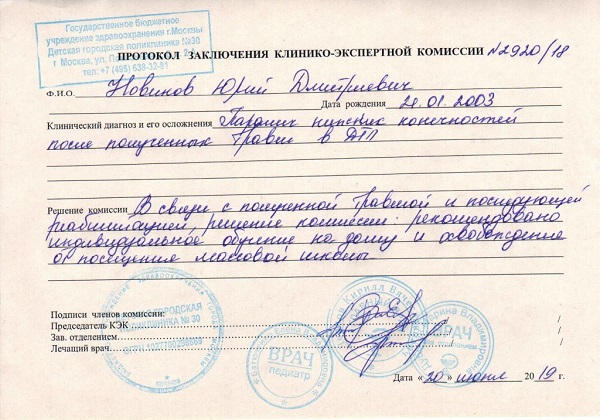 Государственное бюджетное
учреждение здравоохранения г.Москвы
Детская городская поликлиника №30
г Москва, ул.
тел: +7 (495) 638-32-81
ПРОТОКОЛ ЗАКЛЮЧЕНИЯ КЛИНИКО-ЭКСПЕРТНОЙ КОМИССИИ №2920/18
Ф.И.О. Новинов Юрий Дмитриевич
Дата рождения 21.01.2003
Клинический диагноз и его осложнения Паралич нижних конечностей
после полученных травм в ДТП
Решение комиссии В связи с полученной травмой и последующей
реабилитацией, решение комиссии: рекомендовано
индивидуальное обучение на дому и освобождение
от посещения массовой школы
Подписи членов комиссии:
Председатель КЭК
Зав. отделением.
Лечащий врач.
ГОРОДСКАЯ
ПОЛИКЛИНИКА № 30
ВРАЧ
педиатр
Кирилл
Владимировна
ВРАЧ
Дата «20» июня 2019 г.